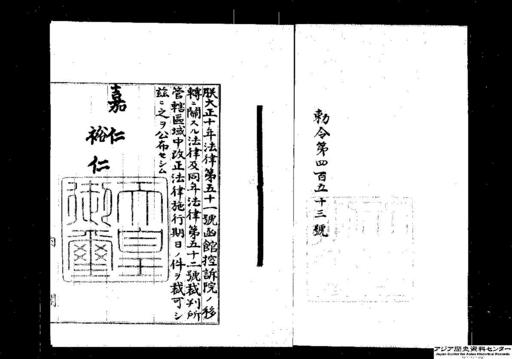 勅令第四百五十三號
朕大正十年法律第五十一號函館控訴院ノ移
轉ニ關スル法律及同年法律第五十二號裁判所
管轄區域中改正法律施行期日ノ件ヲ裁可シ
玆ニ之ヲ公布セシム
嘉仁
裕仁
天皇
御璽
内閣
アジア歴史資料センター
Japan Center for Asian Historical Records